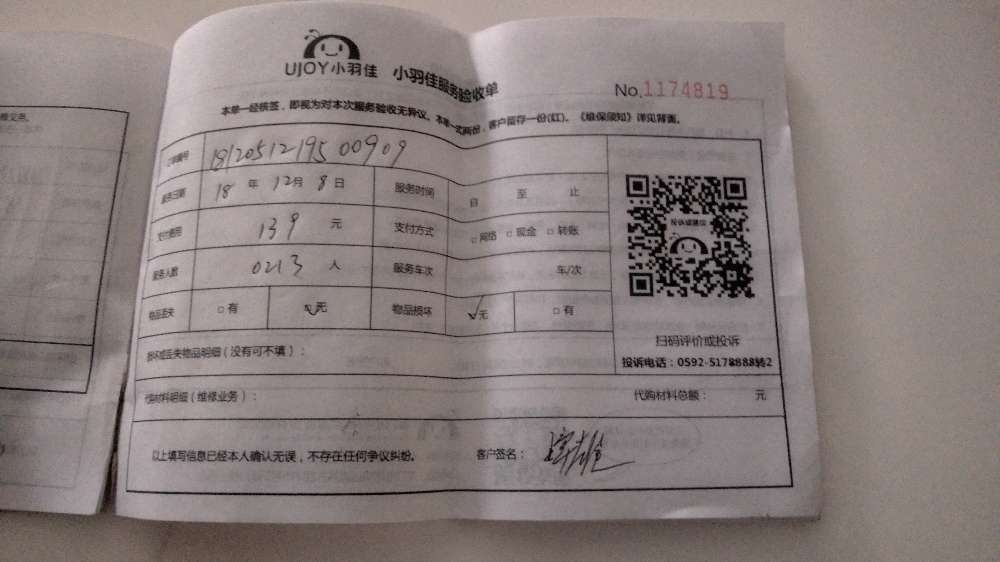 UJOY小羽佳 小羽佳服务验收单
No.1174819
本单一经核签，即视为对本次服务验收无异议。本单一式两份，客户留存一份(红)。《维保须知》详见背面。
订单编号 18120512195 00909
服务日期 18 年 12月 8 日 服务时间 自 至 止
支付费用 139 元 支付方式 □网络 □现金 □转账
服务人数 0213 人 服务车次 车/次
物品丢失 □有 ☑无 物品损坏 ☑无 □有
投诉或建议
扫码评价或投诉
投诉电话：0592-5178888转2
损坏或丢失物品明细（没有可不填）：
代购材料明细（维修业务）： 代购材料总额： 元
以上填写信息已经本人确认无误，不存在任何争议纠纷。 客户签名：